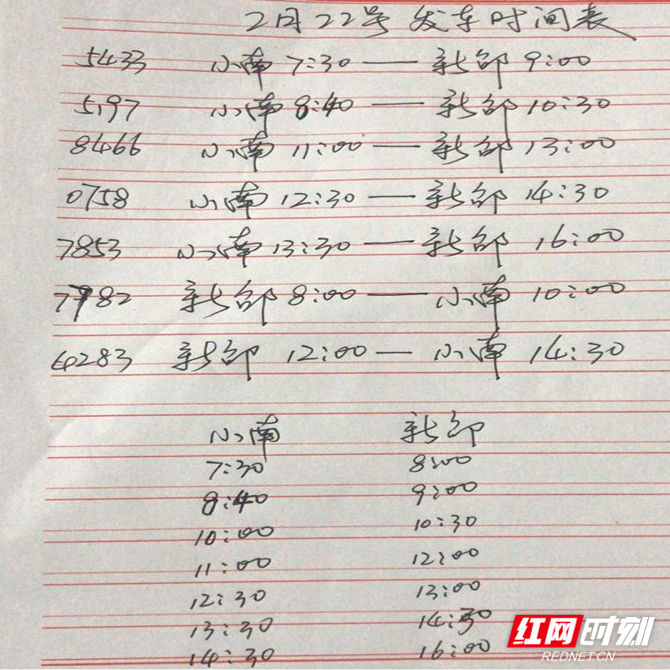 2月22号发车时间表
5433 小南 7:30 — 新邵 9:00
5197 小南 8:40 — 新邵 10:30
8466 小南 11:00 — 新邵 13:00
0758 小南 12:30 — 新邵 14:30
7853 小南 13:30 — 新邵 16:00
7982 新邵 8:00 — 小南 10:00
4283 新邵 12:00 — 小南 14:30
小南 新邵
7:30 8:00
8:40 9:00
10:00 10:30
11:00 12:00
12:30 13:00
13:30 14:30
14:30 16:00
红网时刻
REDNET.CN